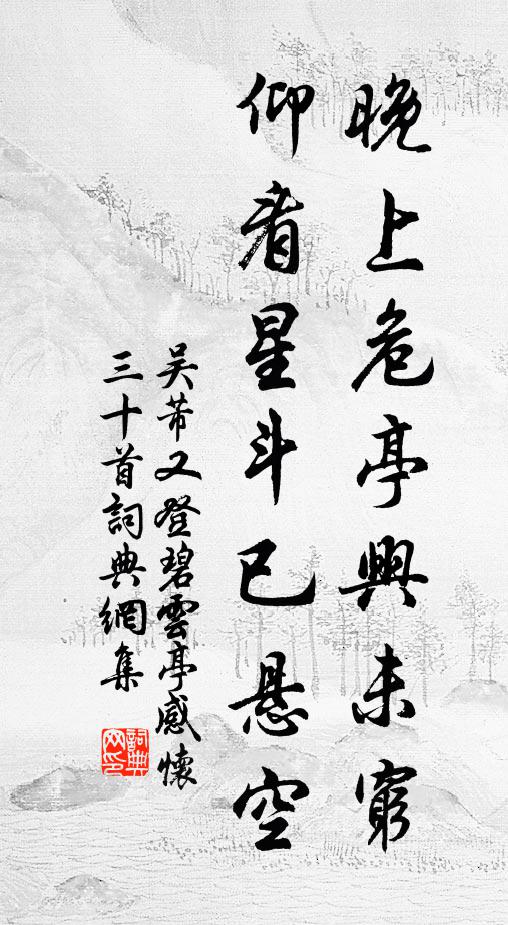 晚上危亭興未窮
仰看星斗已懸空
吴芾又登碧雲亭感懷
三十首詞典網集
詞典網印